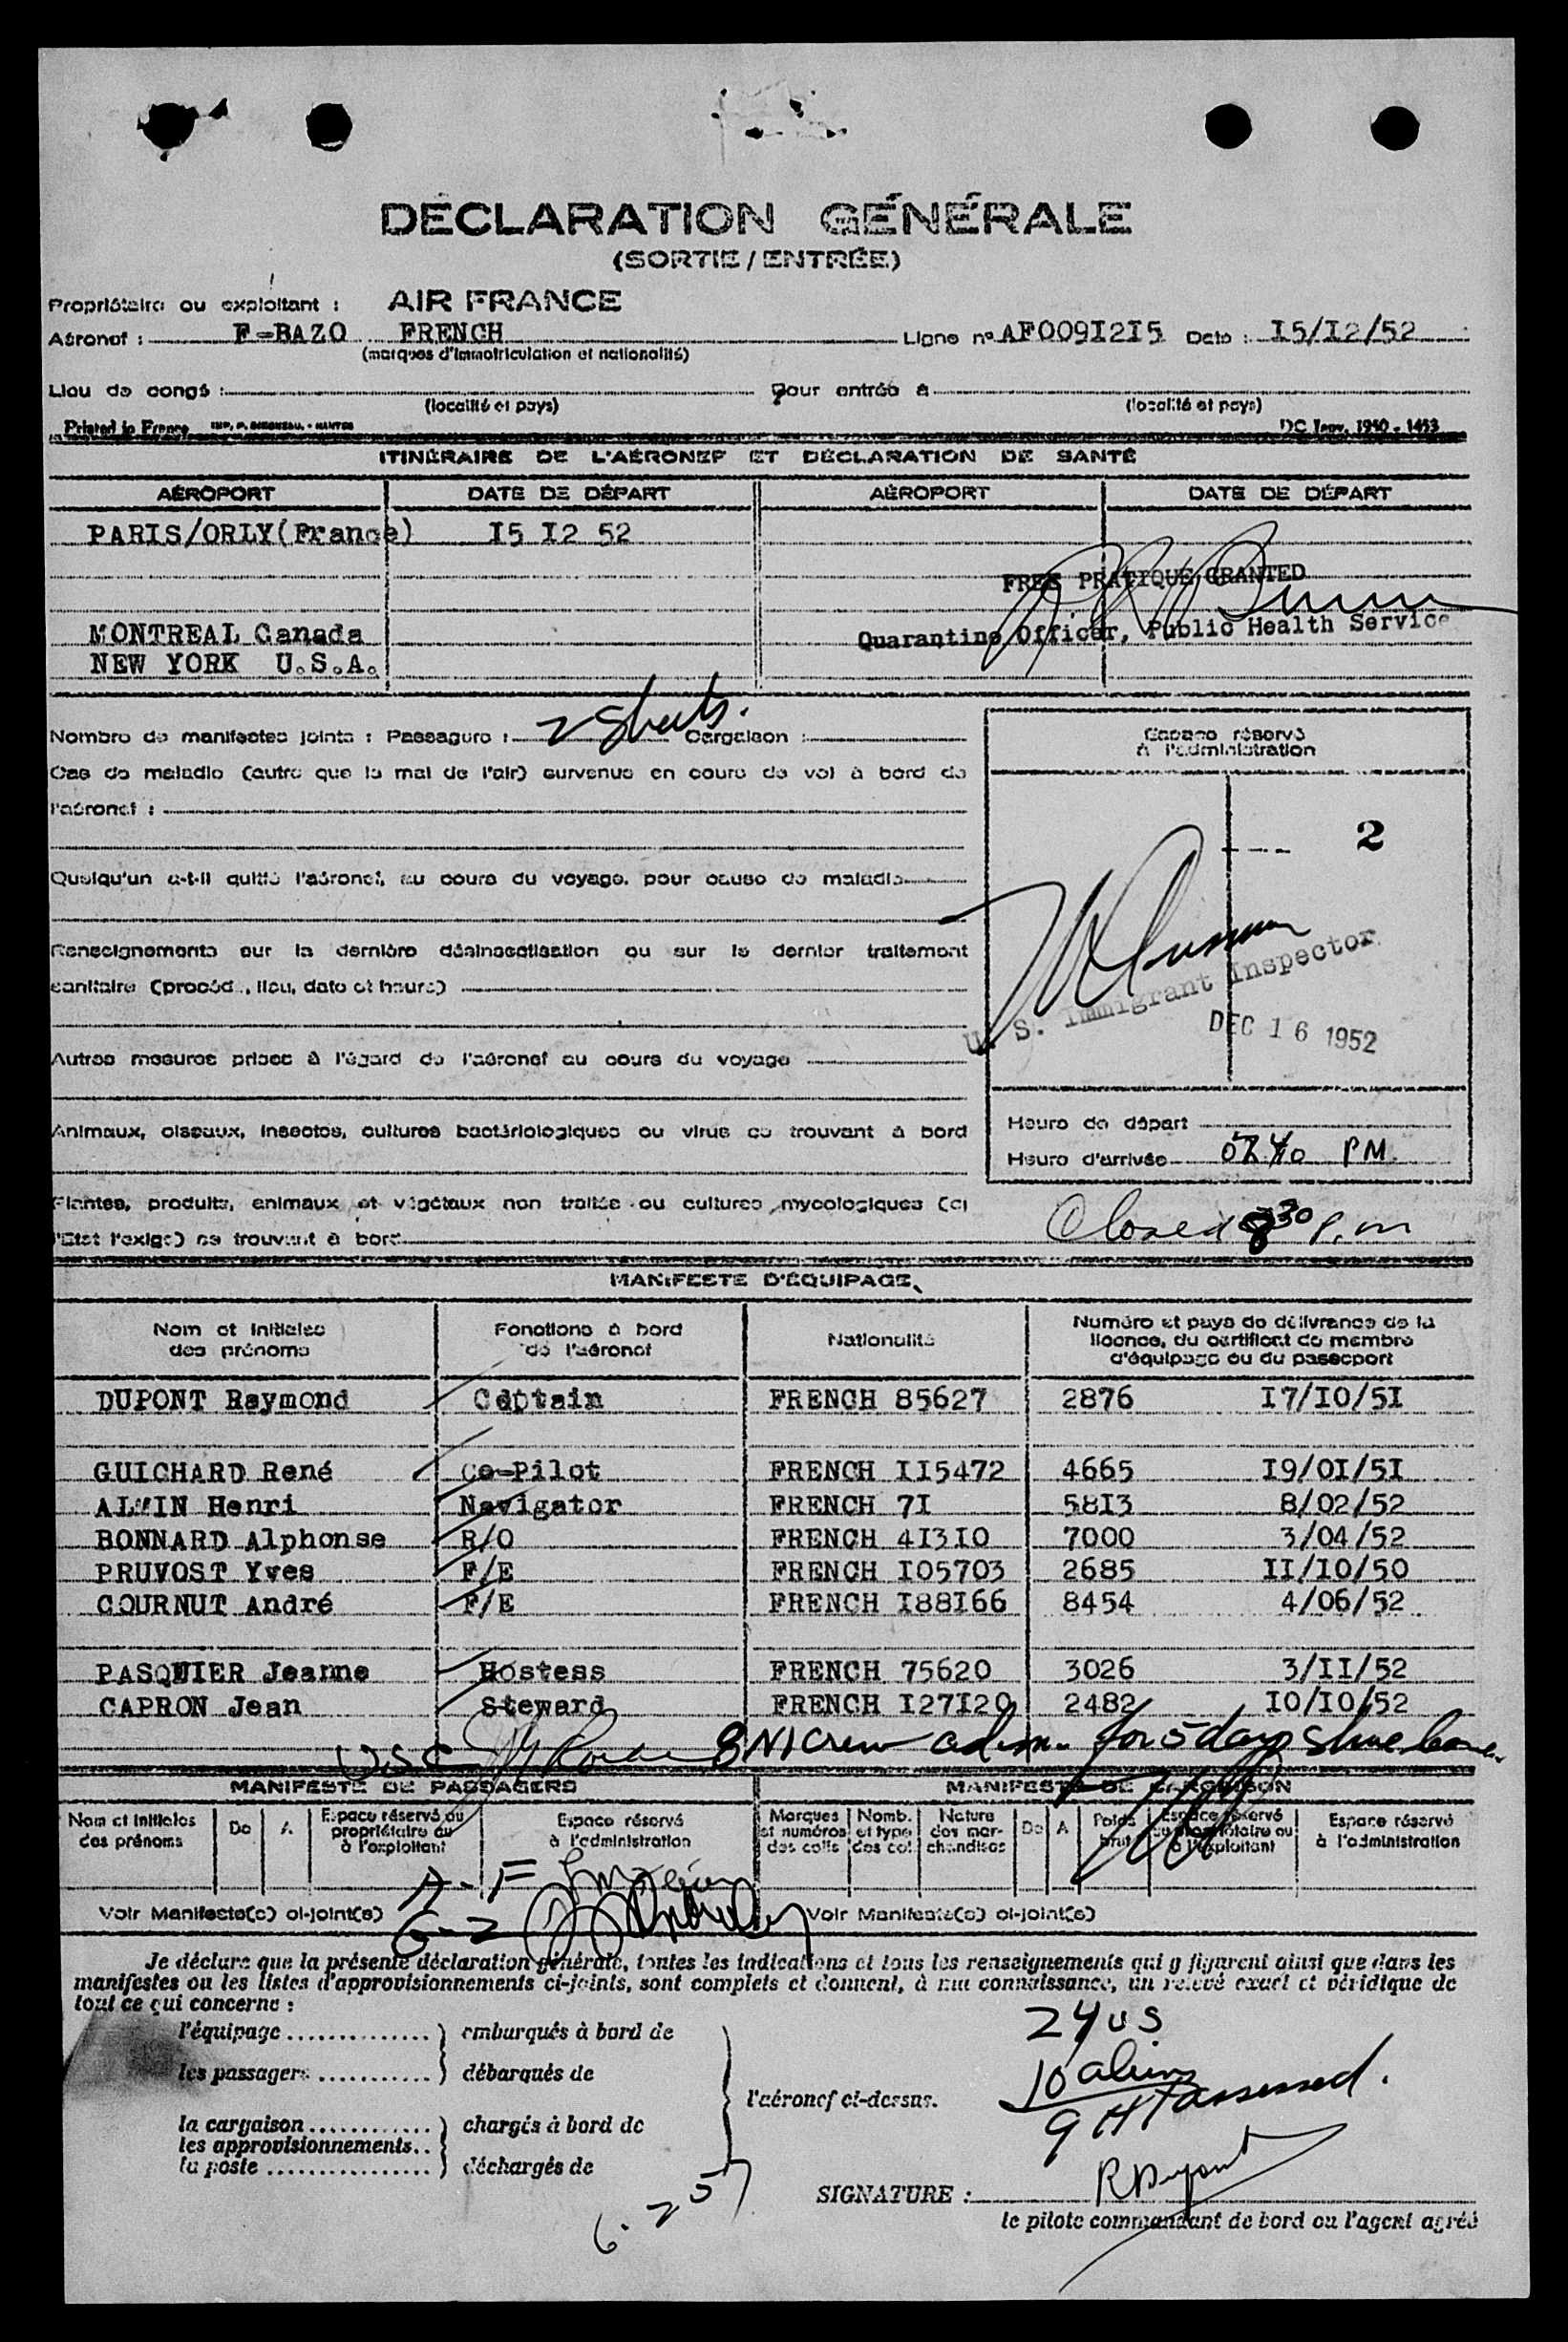 DÉCLARATION GÉNÉRALE
(SORTIE / ENTRÉE)
Propriétaire ou exploitant : AIR FRANCE
Aéronef : F-BAZO FRENCH Ligne n° AF0091215 Date : I5/I2/52
(marques d'immatriculation et nationalité)
Lieu de congé : Pour entrée à
(localité et pays) (localité et pays)
Printed in France DC Janv. 1950 - 1453
ITINÉRAIRE DE L'AÉRONEF ET DÉCLARATION DE SANTÉ
AÉROPORT DATE DE DÉPART AÉROPORT DATE DE DÉPART
PARIS/ORLY(France) I5 I2 52
FREE PRATIQUE GRANTED
MONTREAL Canada
Quarantine Officer, Public Health Service
NEW YORK U.S.A.
Nombre de manifestes joints : Passagers : 2 sheets. Cargaison :
Espace réservé
à l'administration
Cas de maladie (autre que le mal de l'air) survenus en cours de vol à bord de
l'aéronef :
2
Quelqu'un a-t-il quitté l'aéronef, au cours du voyage, pour cause de maladie
Renseignements sur la dernière désinsectisation ou sur le dernier traitement
sanitaire (procédé, lieu, date et heure)
U. S. Immigrant Inspector
DEC 16 1952
Autres mesures prises à l'égard de l'aéronef au cours du voyage
Animaux, oiseaux, insectes, cultures bactériologiques ou virus se trouvant à bord
Heure de départ
Heure d'arrivée PM
Plantes, produits, animaux et végétaux non traités ou cultures mycologiques (si
l'Etat l'exige) se trouvant à bord
Closed 8 30 P.m
MANIFESTE D'ÉQUIPAGE
Nom et initiales des prénoms
Fonctions à bord de l'aéronef
Nationalité
Numéro et pays de délivrance de la licence, du certificat de membre d'équipage ou du passeport
DUPONT Raymond Captain FRENCH 85627 2876 I7/IO/5I
GUICHARD René Co-Pilot FRENCH II5472 4665 I9/OI/5I
Henri Navigator FRENCH 7I 58I3 8/02/52
BONNARD Alphonse R/O FRENCH 4I3IO 7000 3/04/52
PRUVOST Yves F/E FRENCH I05703 2685 II/IO/50
COURNUT André F/E FRENCH I88I66 8454 4/06/52
PASQUIER Jeanne Hostess FRENCH 75620 3026 3/II/52
CAPRON Jean Steward FRENCH I27I20 2482 IO/IO/52
USC 8 NI Crew adm. for 5 days shore leave
MANIFESTE DE PASSAGERS MANIFESTE DE CARGAISON
Nom et initiales des prénoms
De
A
Espace réservé au propriétaire ou à l'exploitant
Espace réservé à l'administration
Marques et numéros des colis
Nomb. et type des col.
Nature des marchandises
De
A
Poids brut
Espace réservé au propriétaire ou à l'exploitant
Espace réservé à l'administration
A.F
Voir Manifeste(s) ci-joint(s) G-2 Voir Manifeste(s) ci-joint(s)
Je déclare que la présente déclaration générale, toutes les indications et tous les renseignements qui y figurent ainsi que dans les
manifestes ou les listes d'approvisionnements ci-joints, sont complets et donnent, à ma connaissance, un relevé exact et véridique de
tout ce qui concerne :
l'équipage .............. ) embarqués à bord de
24 US
les passagers ........... ) débarqués de
10 aliens
l'aéronef ci-dessus.
9 HT assessed.
la cargaison ............ ) chargés à bord de
les approvisionnements..
la poste ................ ) déchargés de
6.257
SIGNATURE : R Dupont
le pilote commandant de bord ou l'agent agréé